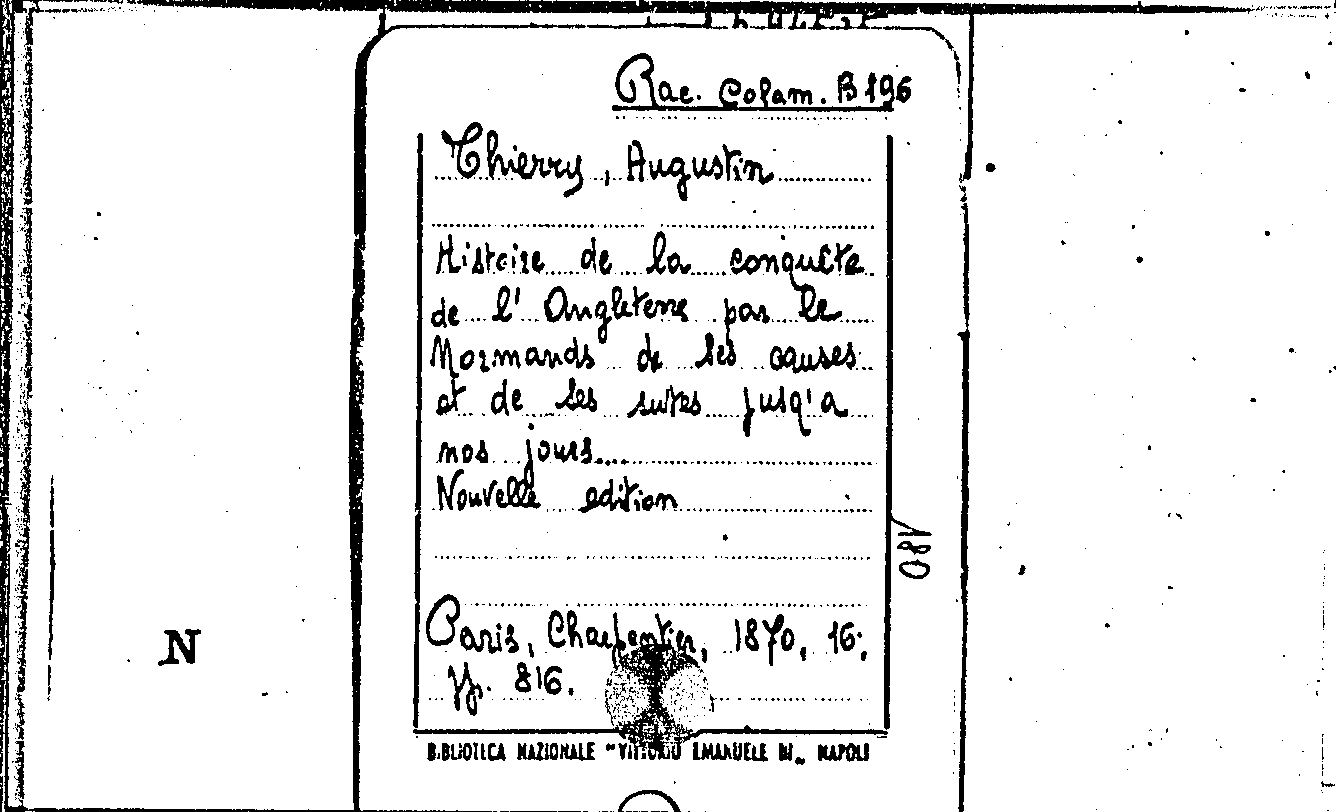 Rac. Colam. B 196
Thierry, Augustin
Histoire de la conquête
de l' Angleterre par le
Normands de ses causes
et de ses suites jusq'a
nos jours...
Nouvelle edition
180
Paris, Charpentier, 1870, 16;
pp. 816.
N
BIBLIOTECA NAZIONALE "VITTORIO EMANUELE III„ NAPOLI